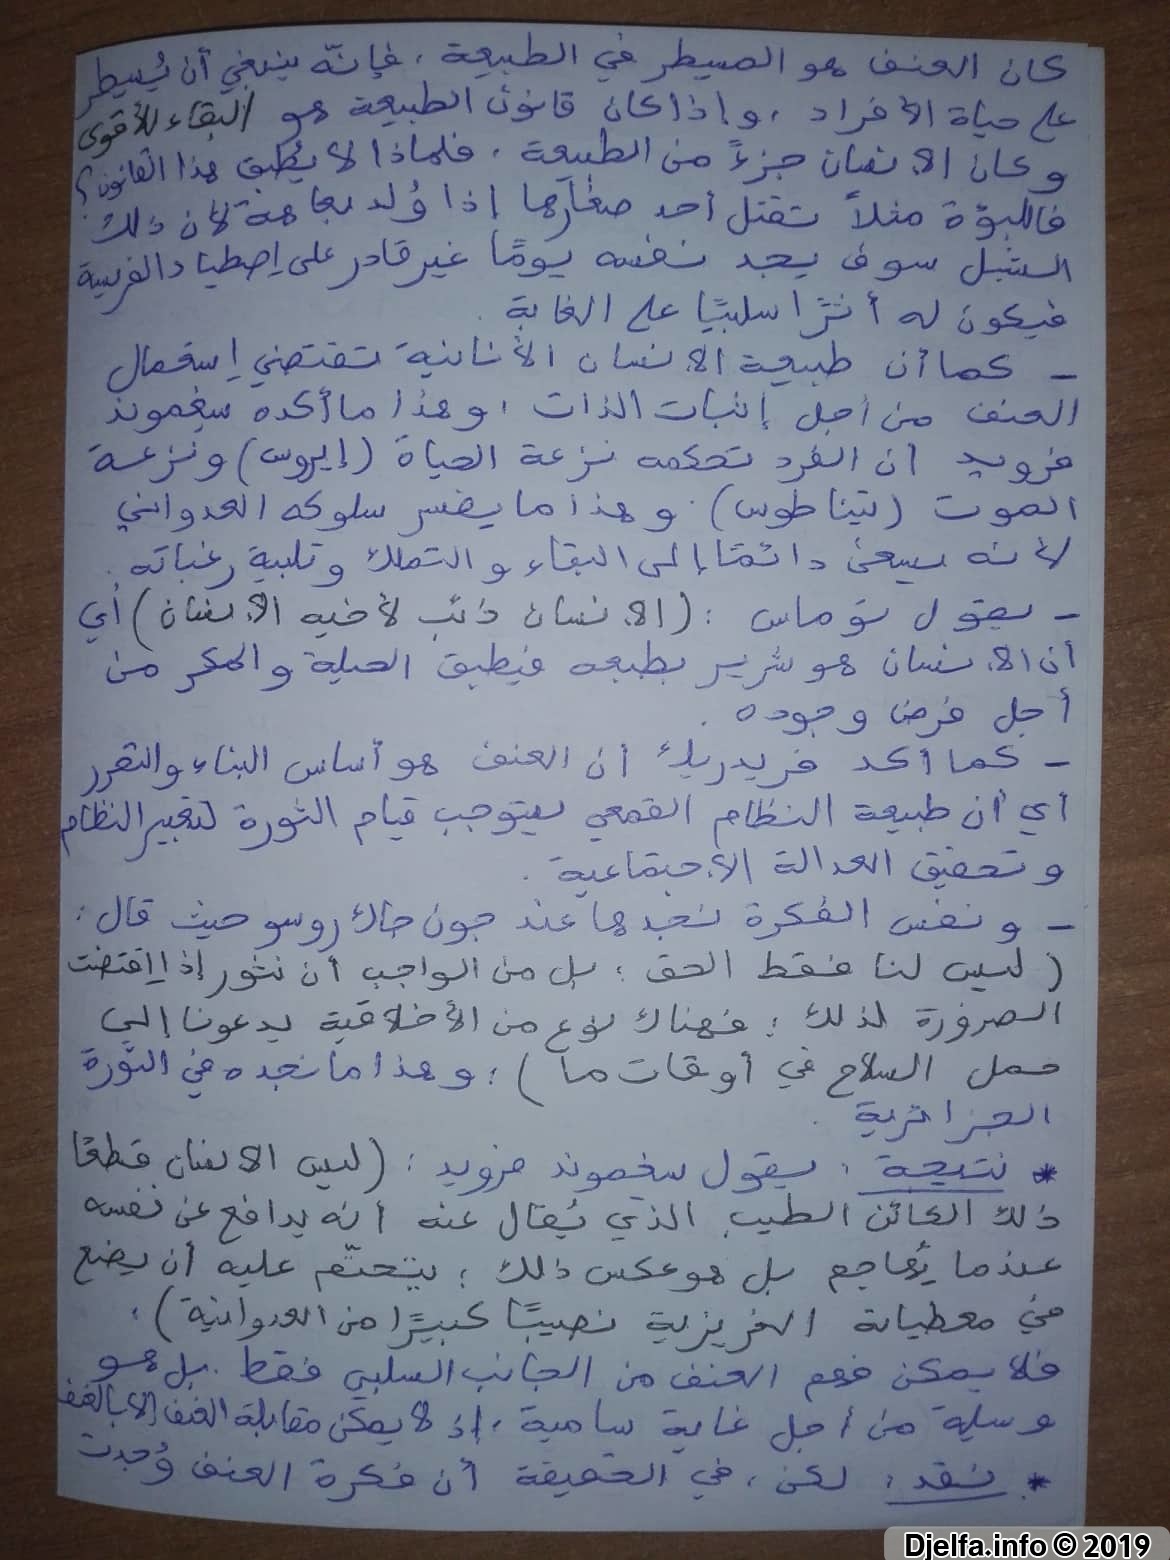 كان العنف هو المسيطر في الطبيعة ، فإنّه ينبغي أن يُسيطر
على حياة الأفراد ، وإذا كان قانون الطبيعة هو البقاء للأقوى
وكان الإنسان جزءً من الطبيعة ، فلماذا لا يُطبق هذا القانون ؟
فاللبؤة مثلاً تقتل أحد صغارها إذا وُلد بعاهة لأن ذلك
الشبل سوف يجد نفسه يومًا غير قادر على إصطياد الفريسة
فيكون له أثرا سلبيًا على الغابة .
- كما أن طبيعة الإنسان الأنانية تقتضي إستعمال
العنف من أجل إثبات الذات ، وهذا ما أكده سيغموند
فرويد أن الفرد تحكمه نزعة الحياة (إيروس) ونزعة
الموت (تيناطوس) . وهذا ما يفسر سلوكه العدواني
لأنه يسعى دائمًا إلى البقاء والتملك وتلبية رغباته .
- يقول توماس : (الإنسان ذئب لأخيه الإنسان) أي
أن الإنسان هو شرير بطبعه فيطبق الحيلة والمكر من
أجل فرض وجوده .
- كما أكد فريدريك أن العنف هو أساس البناء والتحرر
أي أن طبيعة النظام القمعي يستوجب قيام الثورة لتغيير النظام
وتحقيق العدالة الإجتماعية .
- ونفس الفكرة نجدها عند جون جاك روسو حيث قال :
(ليس لنا فقط الحق ؛ بل من الواجب أن نثور إذا إقتضت
الضرورة لذلك ؛ فهناك نوع من الأخلاقية يدعونا إلى
حمل السلاح في أوقات ما) ؛ وهذا ما نجده في الثورة
الجزائرية .
* نتيجة : يقول سيغموند فرويد : (ليس الإنسان قطعًا
ذلك الكائن الطيب الذي يُقال عنه أنه يدافع عن نفسه
عندما يُهاجم بل هو عكس ذلك ؛ يتحتّم عليه أن يضع
في معطياته الغريزية نصيبًا كبيرًا من العدوانية) ؛
فلا يمكن فهم العنف من الجانب السلبي فقط . بل هو
وسيلة من أجل غاية سامية ، إذ لا يمكن مقابلة العنف إلا بالعنف
* نقد : لكن ، في الحقيقة أن فكرة العنف وُجدت
Djelfa.info © 2019